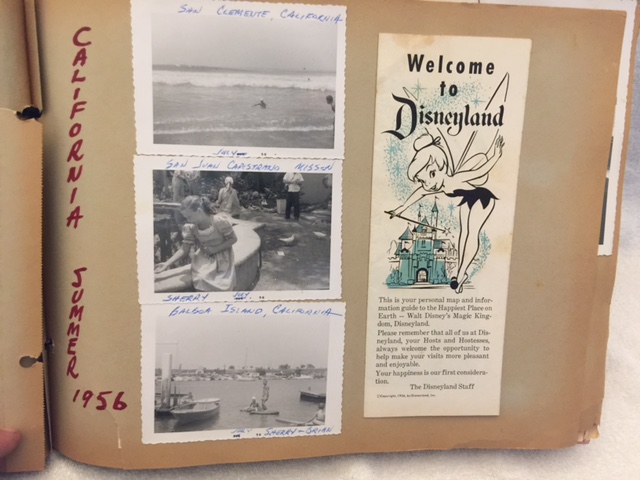 CALIFORNIA SUMMER 1956
SAN CLEMENTE, CALIFORNIA
JULY
SAN JUAN CAPISTRANO MISSION
SHERRY
BALBOA ISLAND, CALIFORNIA
SHERRY - BRIAN
Welcome
to
Disneyland
This is your personal map and infor-
mation guide to the Happiest Place on
Earth – Walt Disney's Magic King-
dom, Disneyland.
Please remember that all of us at Dis-
neyland, your Hosts and Hostesses,
always welcome the opportunity to
help make your visits more pleasant
and enjoyable.
Your happiness is our first considera-
tion.
The Disneyland Staff